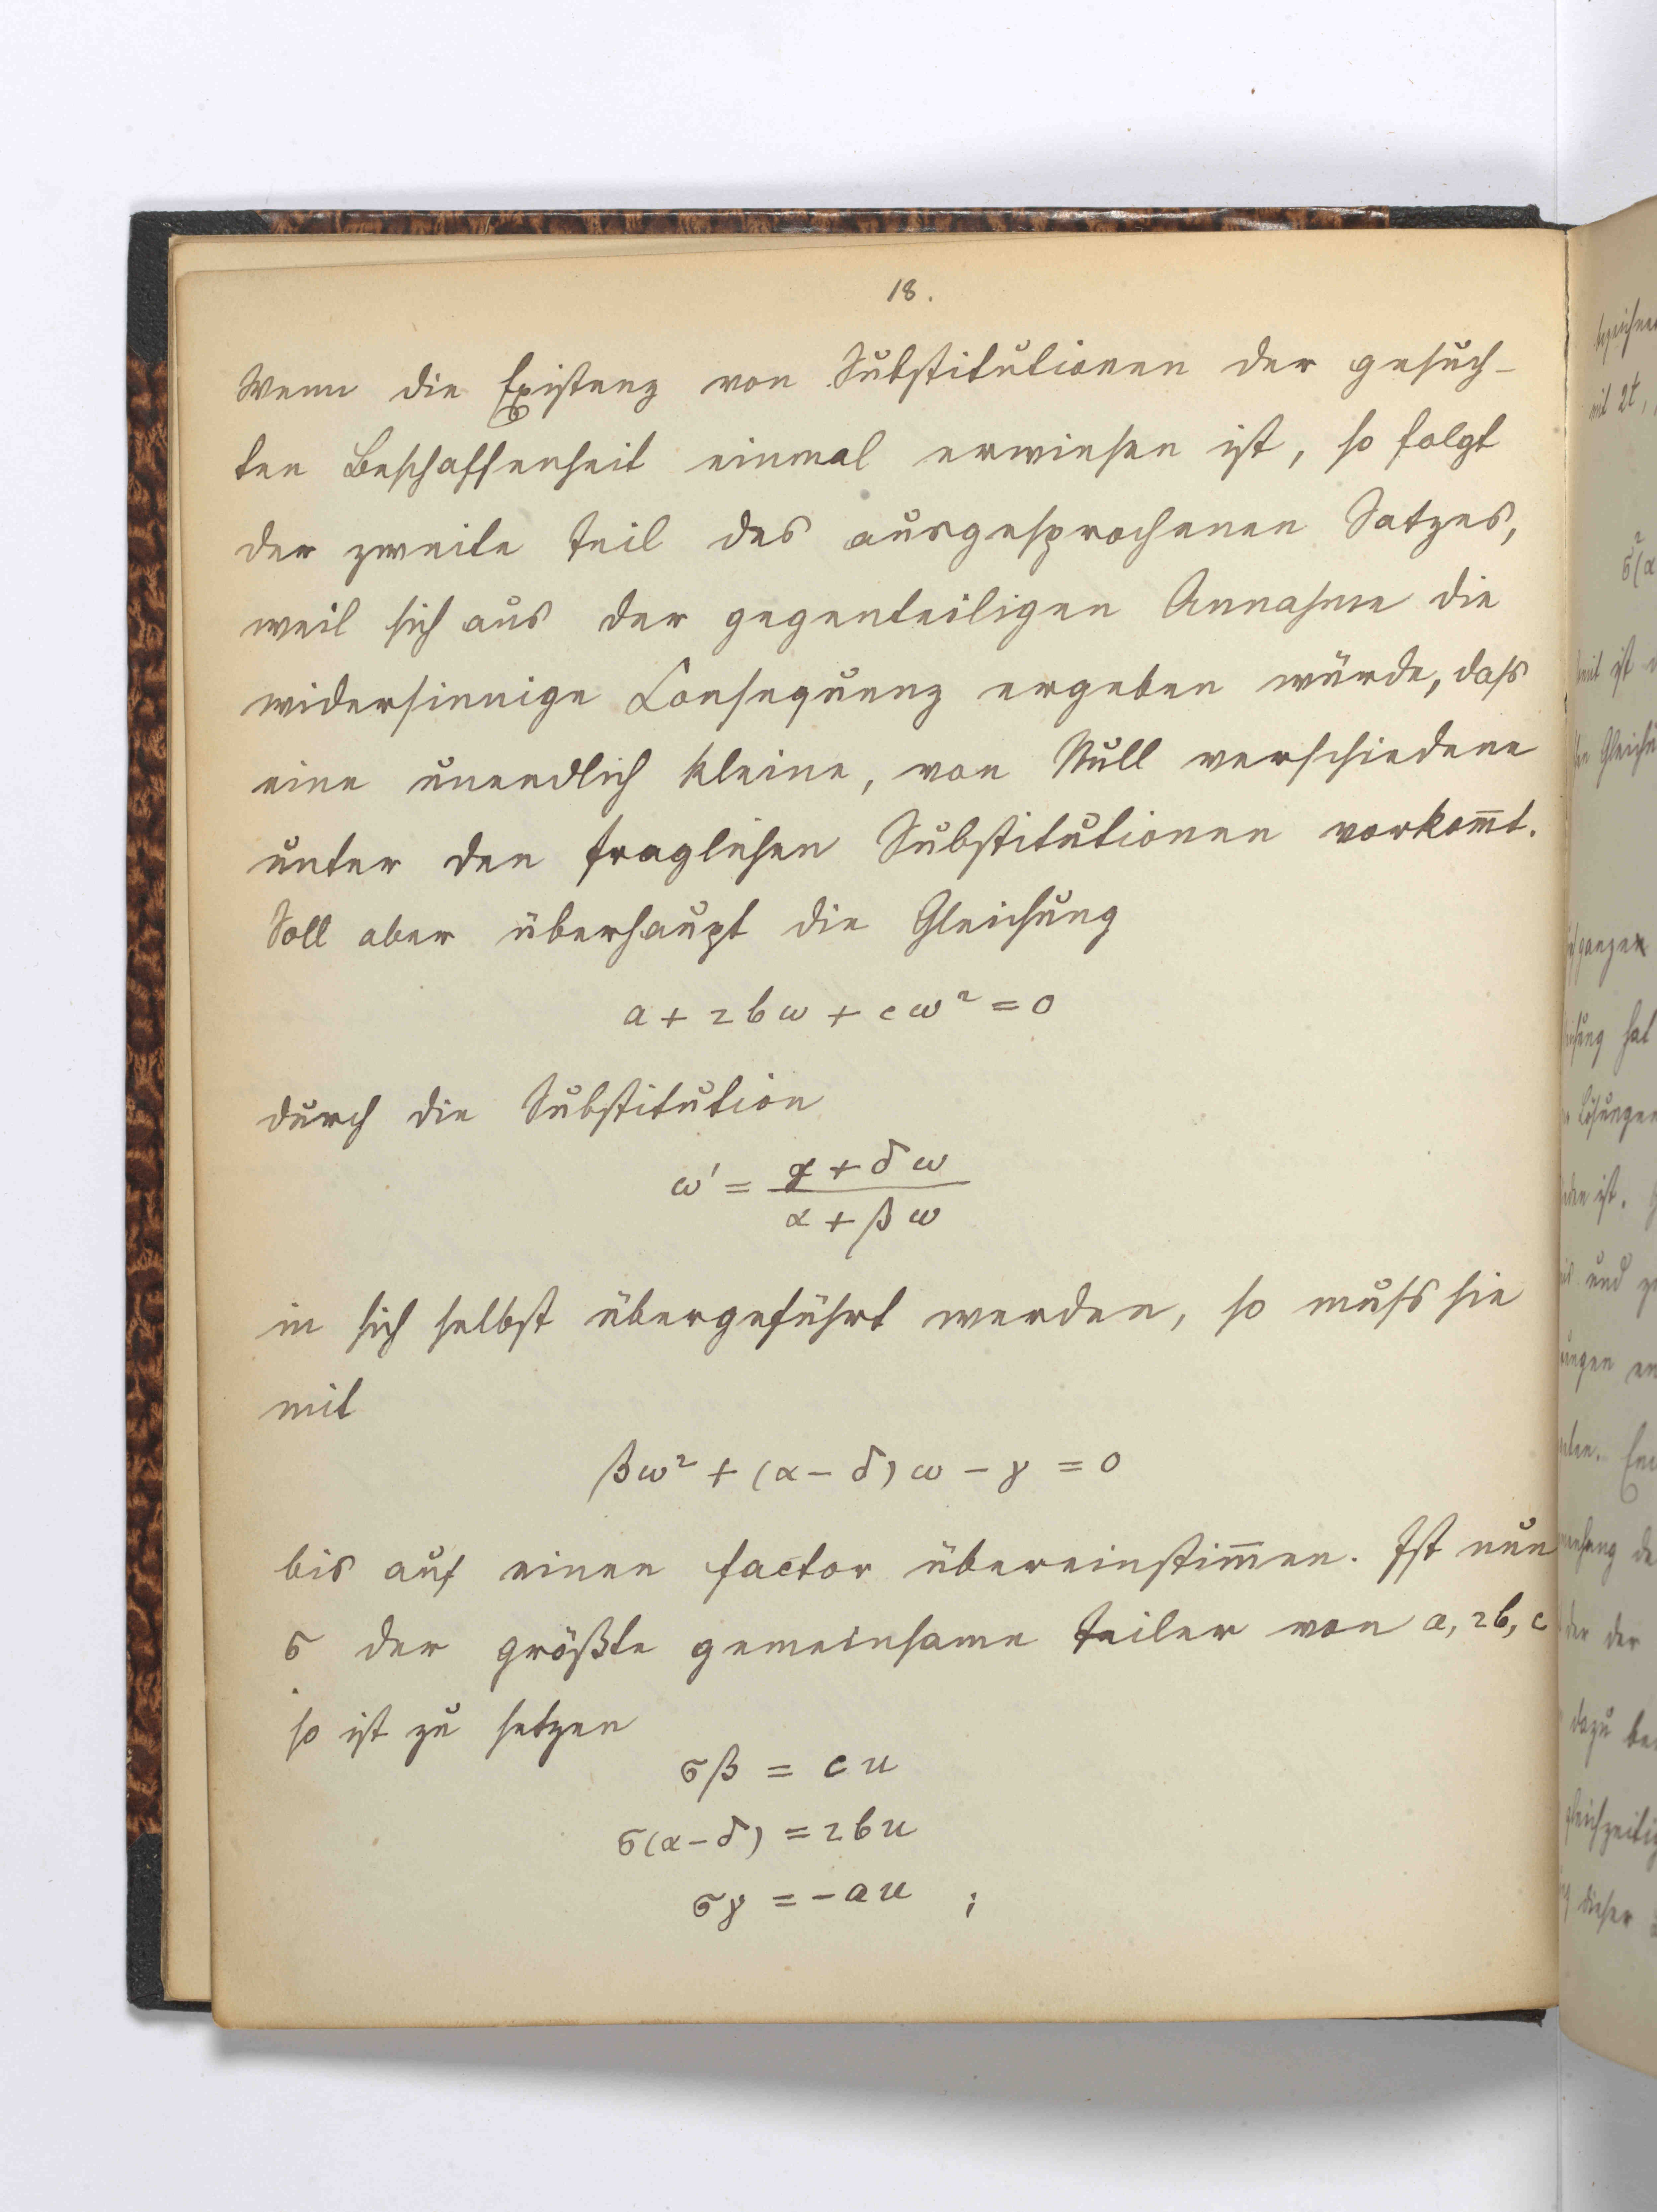 18.
Wenn die Existenz von Substitutionen der gesuch-
ten Beschaffenheit einmal erwiesen ist, so folgt
der zweite Teil des ausgesprochenen Satzes,
weil sich aus der gegenteiligen Annahme die
widersinnige Consequenz ergeben würde, dass
eine unendlich kleine, von Null verschiedene
unter den fraglichen Substitutionen vorkom̅t.
Soll aber überhaupt die Gleichung
a + 2bω + cω² = 0
durch die Substitution
ω' = (γ + δω) / (α + βω)
in sich selbst übergeführt werden, so muss sie
mit
βω² + (α - δ)ω - γ = 0
bis auf einen factor übereinstim̅en. Ist nun
σ der größte gemeinsame Teiler von a, 2b, c
so ist zu setzen
σβ = cu
σ(α-δ) = 2bu
σγ = -au ;
mit 2t,
ist
Gleichu
ganzen
hat
Lösungen
ist.
und
der
dazu
gleichzeitig
dieser